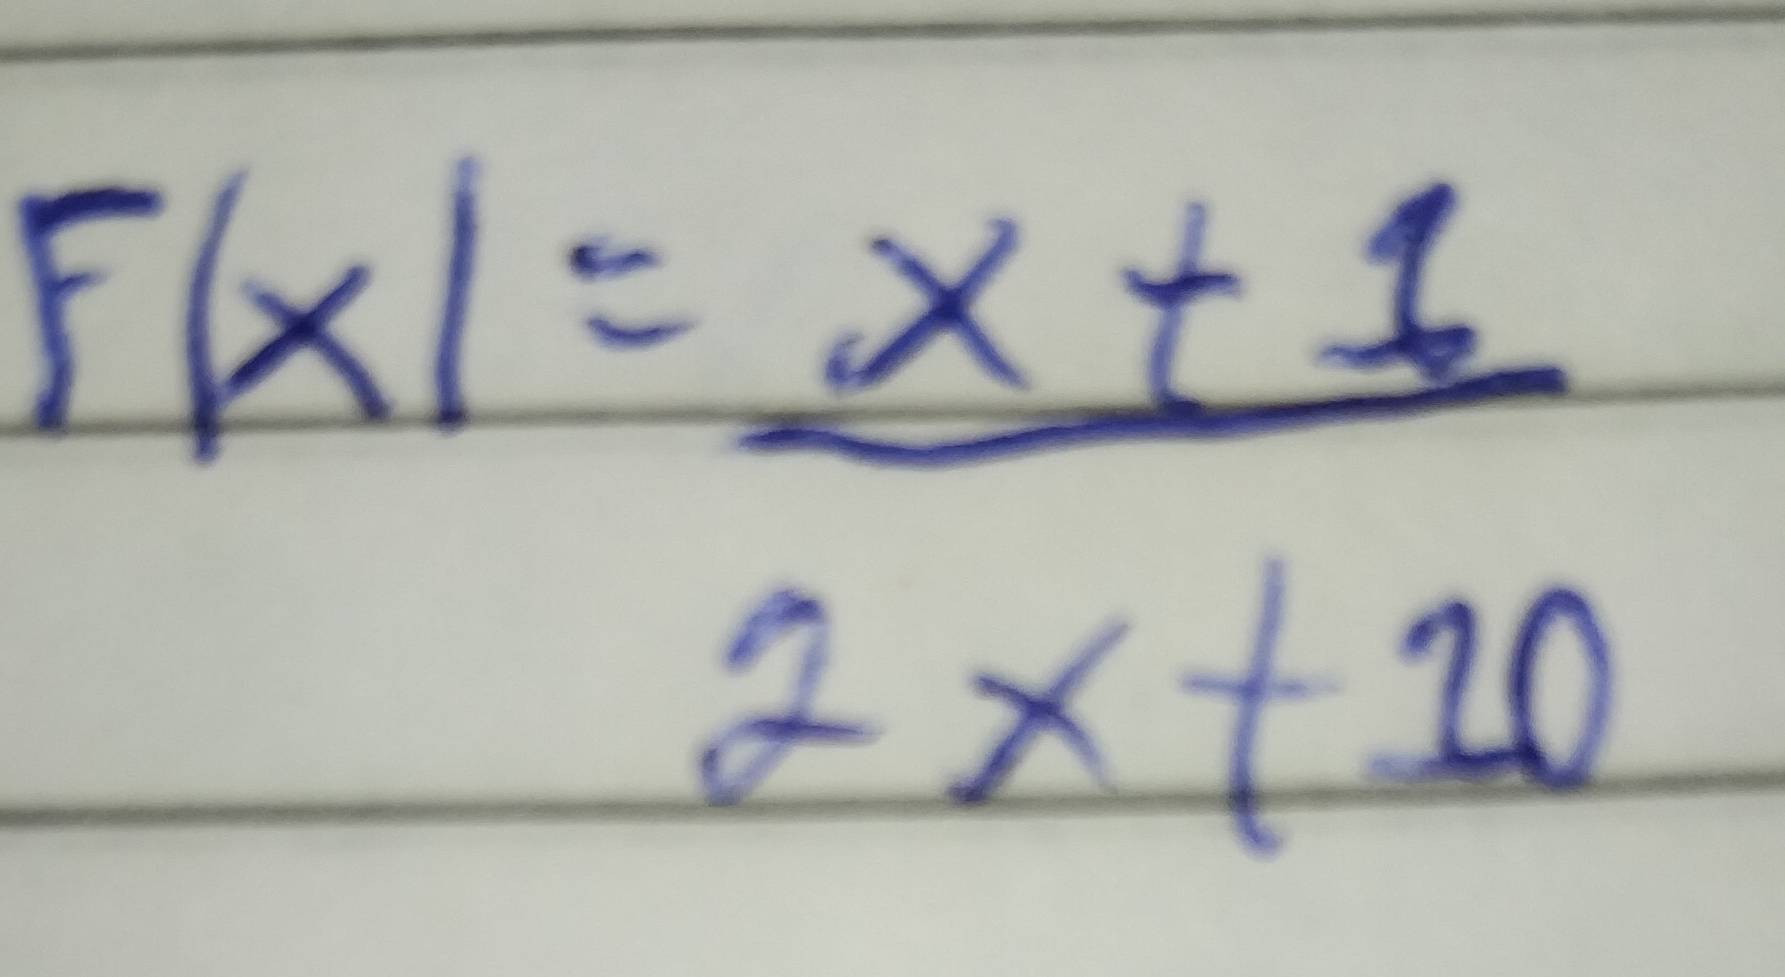 F(x) = x + 1
2x + 10